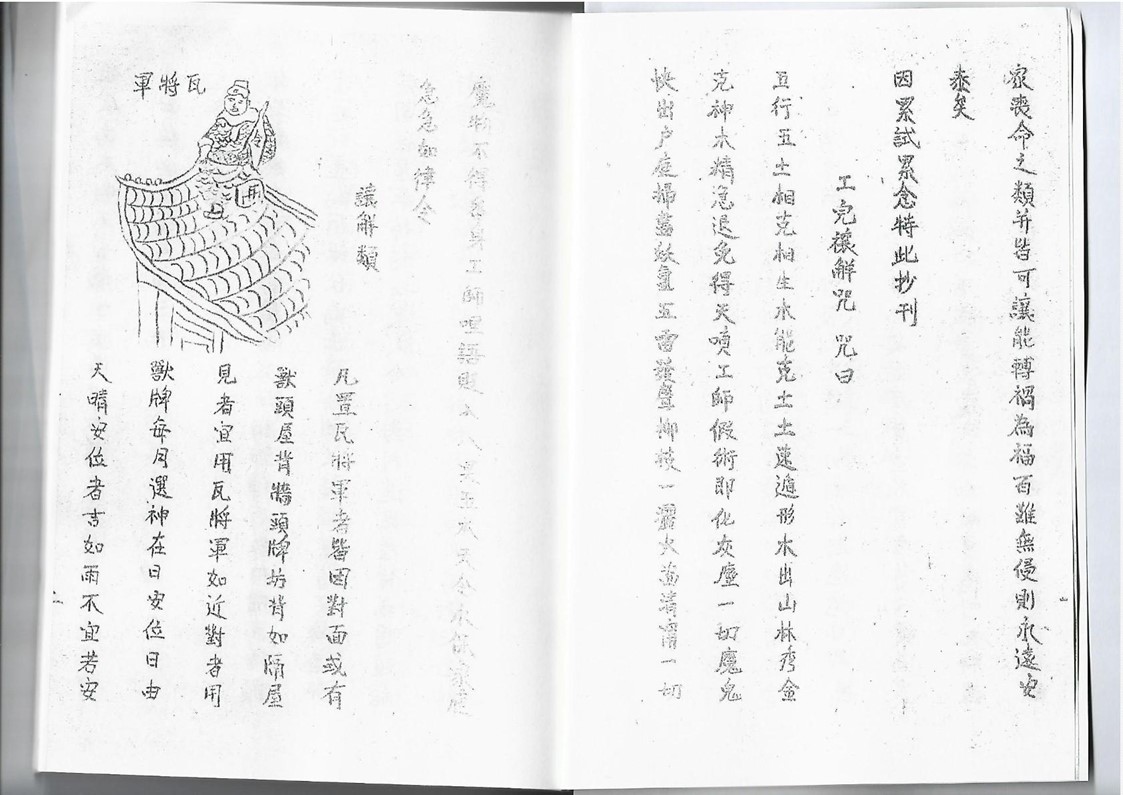 家喪命之類并皆可讓能轉禍為福百難無侵則永遠安
泰矣
因累試累念特此抄刊
工完禳解咒 咒曰
五行五土相克相生木能克土土速遁形木出山林秀金
克神木精急退免得天嗔工師假術即化灰塵一切魔鬼
快出户庭掃蕩妖氣五雷發聲柳枝一灑火盗清甯一切
一
魔物不得身工師哩語貶天令永保家庭
急急如律令
讓解類
瓦將軍
凡置瓦將軍者皆因對面或有
獸頭屋脊牆頭牌坊脊如隔屋
見者宜用瓦將軍如近對者用
獸牌每月選神在日安位日由
天晴安位者吉如雨不宜若安
二